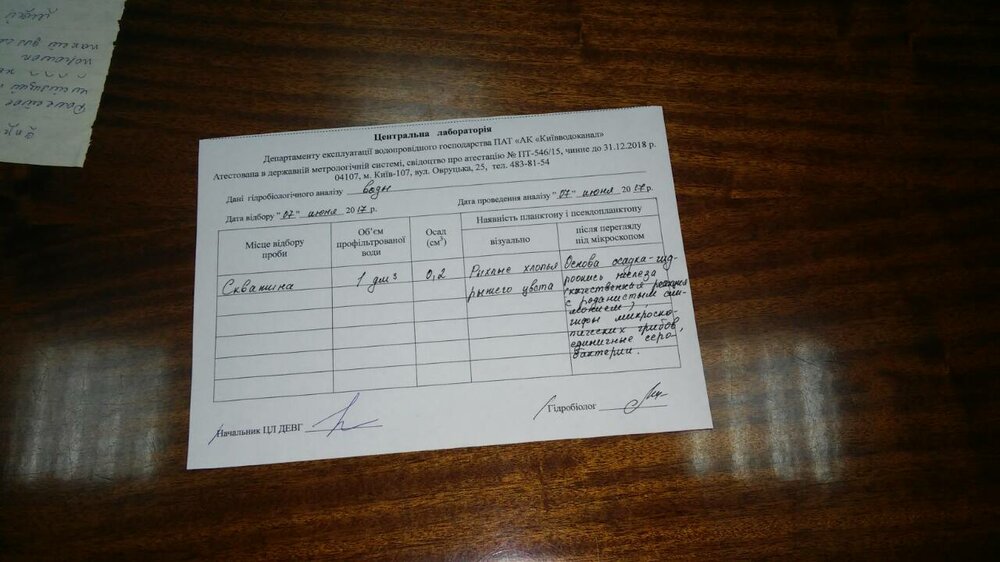 Центральна лабораторія
Департаменту експлуатації водопровідного господарства ПАТ «АК «Київводоканал»
Атестована в державній метрологічній системі, свідоцтво про атестацію № ПТ-546/15, чинне до 31.12.2018 р.
04107, м. Київ-107, вул. Овруцька, 25, тел. 483-81-54
Дані гідробіологічного аналізу воды
Дата відбору "07" июня 2017 р. Дата проведення аналізу "07" июня 2017 р.
Місце відбору проби
Об'єм профільтрованої води
Осад (см³)
Наявність планктону і псевдопланктону
візуально
після перегляду під мікроскопом
Скважина
1 дм³
0,2
Рыхлые хлопья
рыжего цвета
Основа осадка-гид-
роокись железа
(качественная реакция
с роданистым
гифы микроско-
пических грибов,
единичные серо-
бактерии.
Начальник ЦЛ ДЕВГ
Гідробіолог